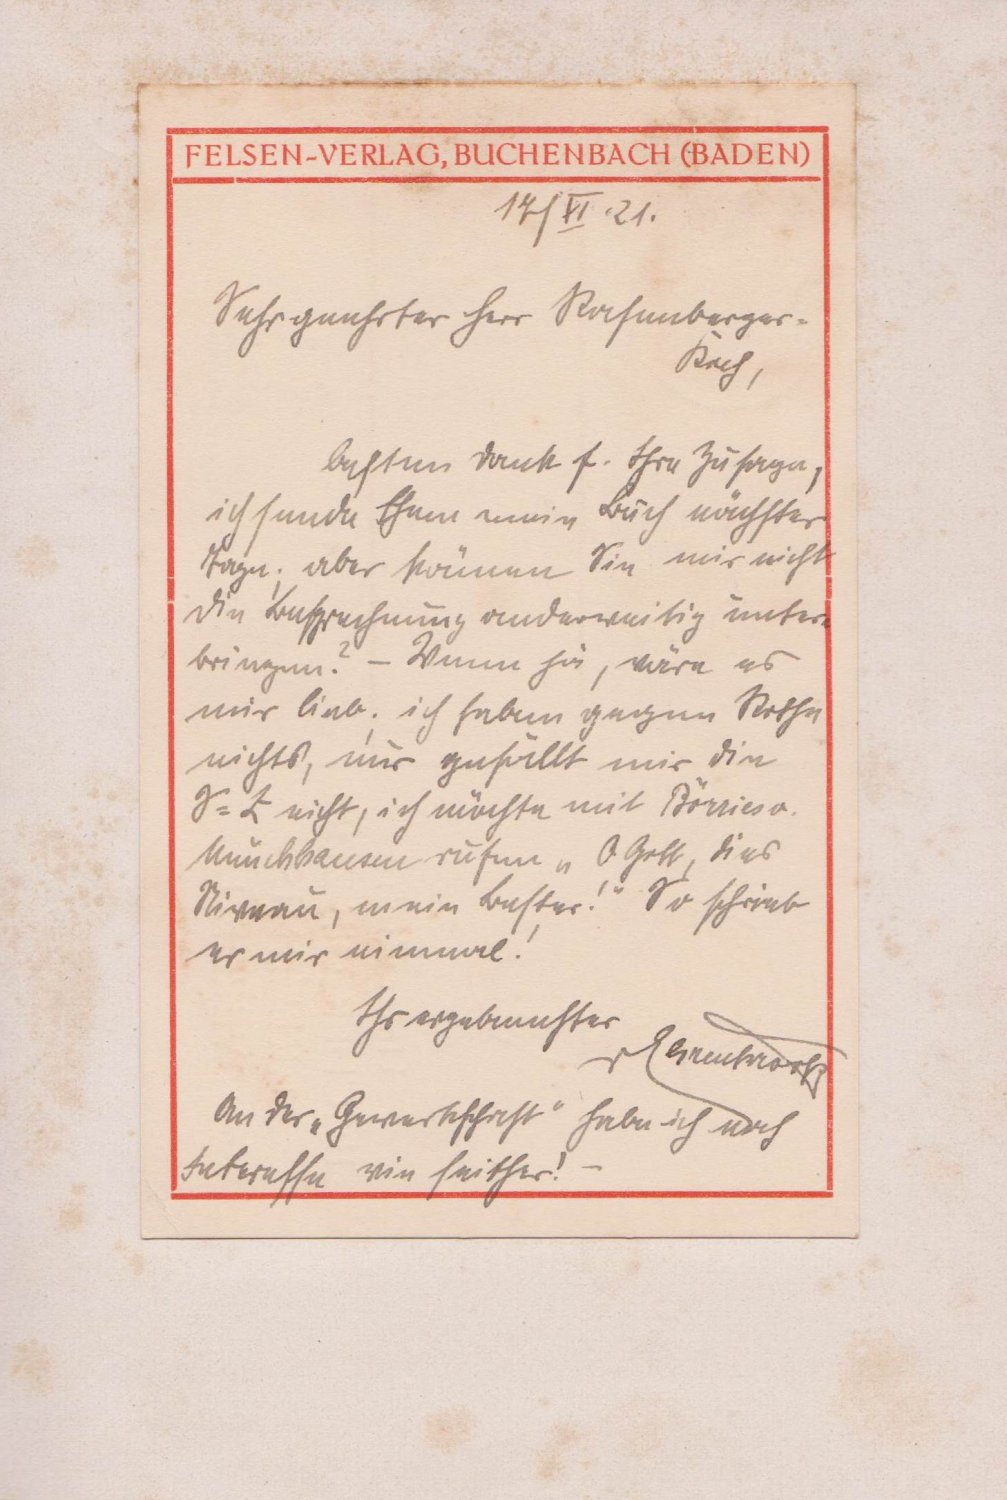 FELSEN-VERLAG, BUCHENBACH (BADEN)
17/VI.21.
Sehr geehrter Herr
Koch,
besten Dank f. Ihre Zusage,
ich sende Ihnen mein Buch nächster
Tage; aber können Sie mir nicht
die Besprechung anderweitig unter-
bringen? – Wenn ja, wäre es
mir lieb; ich habe gegen Rothe
nichts, nur gefällt mir die
S=Z nicht, ich möchte mit Börries v.
Münchhausen rufen „O Gott, dies
Niveau, mein Bester!" So schrieb
er mir einmal!
Ihr ergebenster
An der „Gewerkschaft" habe ich noch
Interesse wie seither! –